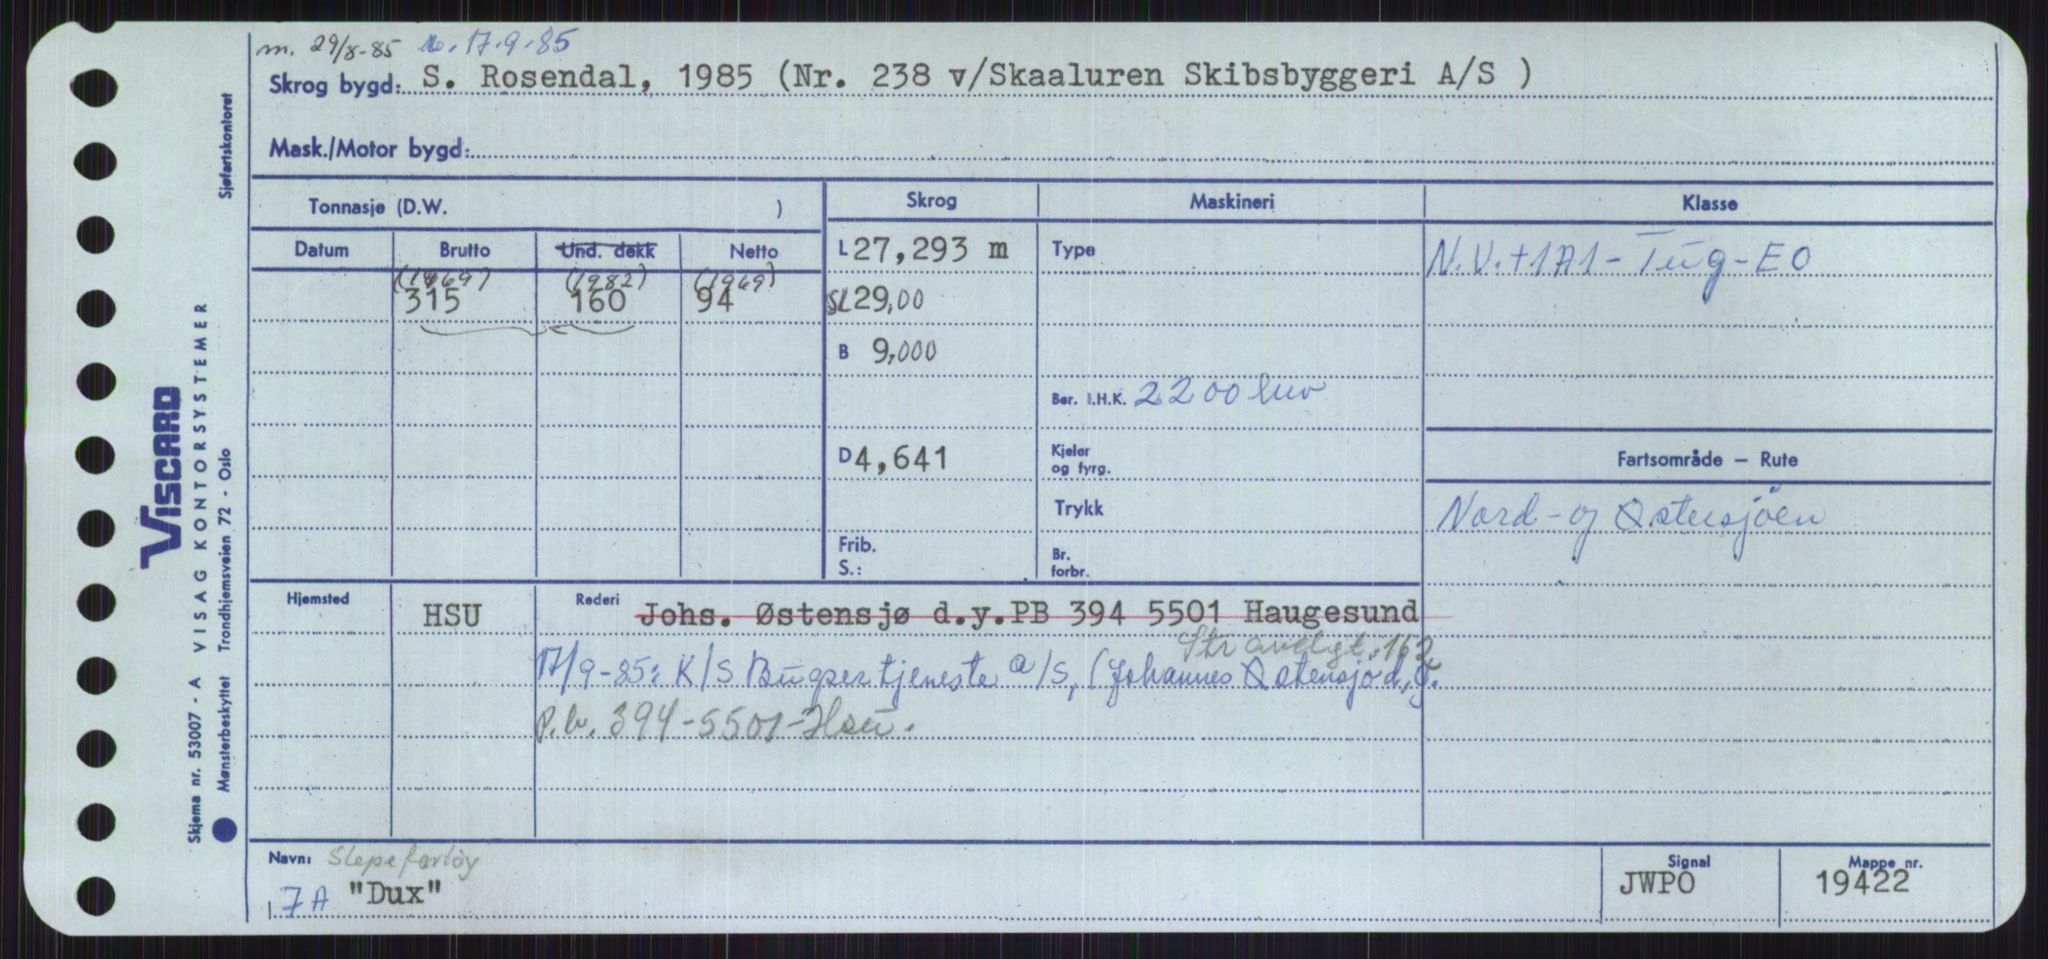 m. 29/8-85 m. 17.9.85
Skrog bygd: S. Rosendal, 1985 (Nr. 238 v/Skaaluren Skibsbyggeri A/S )
Mask./Motor bygd:
Tonnasje (D.W. )
Skrog Maskineri Klasse
Datum Brutto Und. dekk Netto
(1969) (1982) (1969)
315 160 94
L 27,293 m
SL 29,00
B 9,000
D 4,641
Frib.
S.:
Type
Ber. I.H.K. 2200
Kjeler
og fyrg.
Trykk
Br.
forbr.
N.V.+1A1-Tug-EO
Fartsområde – Rute
Nord- og Østensjöen
Hjemsted HSU
Rederi Johs. Østensjø d.y. PB 394 5501 Haugesund
162
17/9-85: K/S Bugsertjeneste a/S, (Johannes Østensjö d.y.
p.b. 394-5501-Hsu.
Navn: Slepefartöy
7A "Dux"
Signal
JWPO
Mappe nr.
19422
Sjøfartskontoret
VISCARD
VISAG KONTORSYSTEMER
Trondhjemsveien 72 - Oslo
Skjema nr. 53007 - A
Mønsterbeskyttet